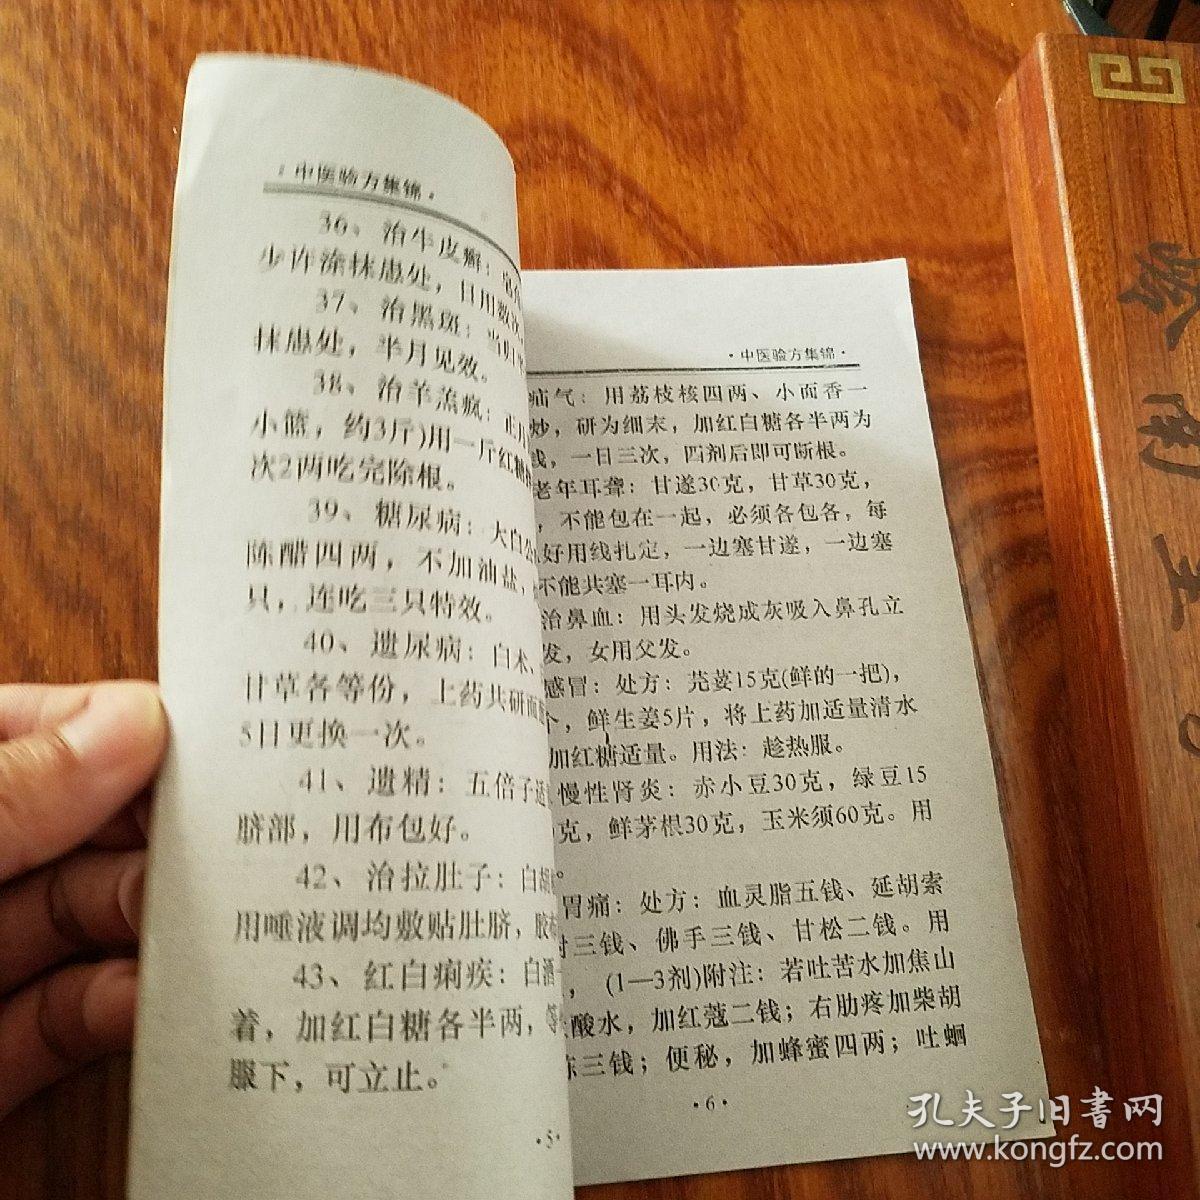 ·中医验方集锦·
36、治牛皮癣：
少许涂抹患处，日用数次
37、治黑斑：当归
抹患处，半月见效。
38、治羊羔疯：正月
小篮，约3斤)用一斤红糖
次2两吃完除根。
39、糖尿病：大白公
陈醋四两，不加油盐，
只，连吃三只特效。
40、遗尿病：白术、
甘草各等份，上药共研面
5日更换一次。
41、遗精：五倍子适
脐部，用布包好。
42、治拉肚子：白胡
用唾液调均敷贴肚脐，胶布
43、红白痢疾：白酒一
着，加红白糖各半两，等
服下，可立止。
·5·
·中医验方集锦·
疝气：用荔枝核四两、小面香一
炒，研为细末，加红白糖各半两为
钱，一日三次，四剂后即可断根。
老年耳聋：甘遂30克，甘草30克，
，不能包在一起，必须各包各，每
好用线扎定，一边塞甘遂，一边塞
不能共塞一耳内。
治鼻血：用头发烧成灰吸入鼻孔立
发，女用父发。
感冒：处方：芫荽15克(鲜的一把)，
个，鲜生姜5片，将上药加适量清水
加红糖适量。用法：趁热服。
慢性肾炎：赤小豆30克，绿豆15
克，鲜茅根30克，玉米须60克。用
。
胃痛：处方：血灵脂五钱、延胡索
三钱、佛手三钱、甘松二钱。用
，(1—3剂)附注：若吐苦水加焦山
酸水，加红蔻二钱；右肋疼加柴胡
三钱；便秘，加蜂蜜四两；吐蛔
·6·
孔夫子旧书网
www.kongfz.com